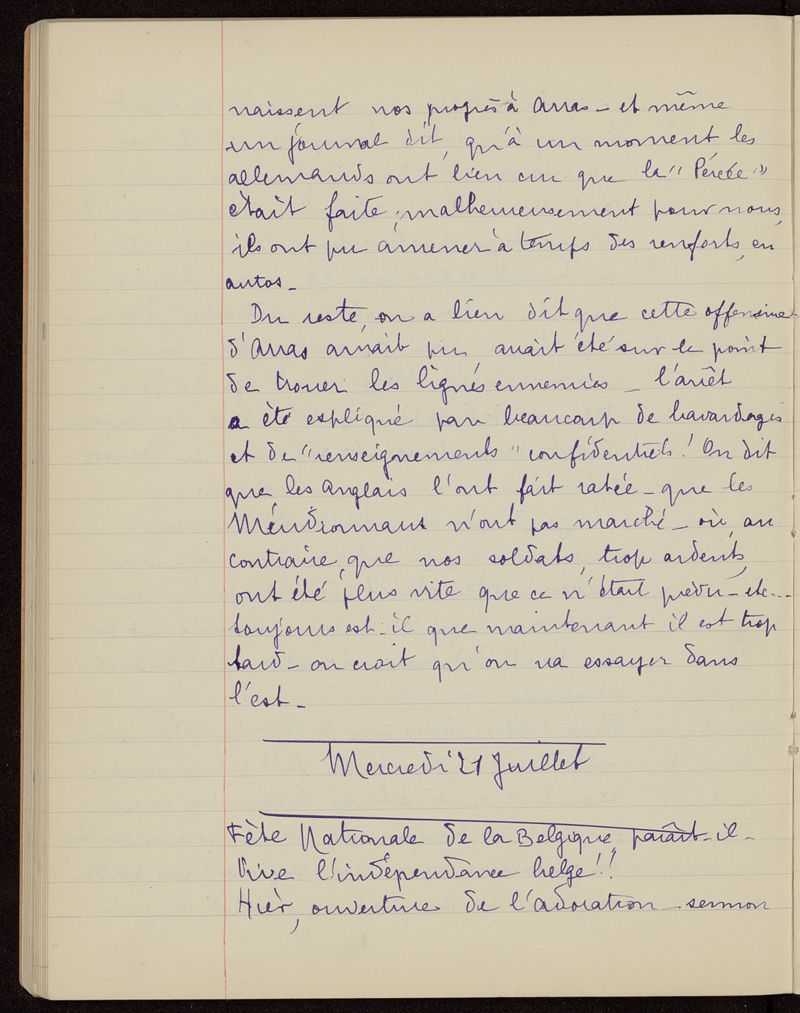 naissent nos progrès à Arras - et même
un journal dit, qu'à un moment les
allemands ont bien cru que la "Percée"
était faite; malheureusement pour nous,
ils ont pu amener à temps des renforts, en
autos -
Du reste, on a bien dit que cette offensive
d'Arras aurait pu, avait été sur le point
de trouer les lignes ennemies - l'arrêt
a été expliqué par beaucoup de bavardages
et de "renseignements" confidentiels! On dit
que les Anglais l'ont fait ratée - que les
Méridionaux n'ont pas marché - où, au
contraire, que nos soldats, trop ardents,
ont été plus vite que ce n'était prévu - etc...
toujours est-il que maintenant il est trop
tard - on croit qu'on va essayer dans
l'est -
Mercredi 21 Juillet
Fête Nationale de la Belgique, paraît-il -
Vive l'indépendance belge!!
Hier, ouverture de l'adoration - sermon